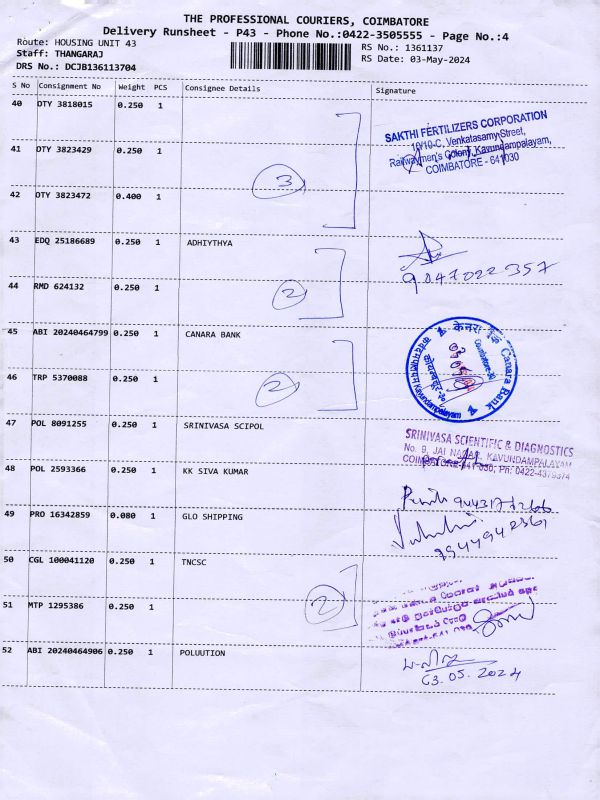 THE PROFESSIONAL COURIERS, COIMBATORE
Delivery Runsheet - P43 - Phone No.:0422-3505555 - Page No.:4
Route: HOUSING UNIT 43
RS No.: 1361137
Staff: THANGARAJ
RS Date: 03-May-2024
DRS No.: DCJB136113704
S No Consignment No Weight PCS Consignee Details Signature
40 OTY 3818015 0.250 1
SAKTHI FERTILIZERS CORPORATION
10/10-C, Venkatasamy Street,
Railwaymen's Colony, Kavundampalayam,
COIMBATORE - 641030
41 OTY 3823429 0.250 1
3
42 OTY 3823472 0.400 1
43 EDQ 25186689 0.250 1 ADHIYTHYA
9047022357
44 RMD 624132 0.250 1
2
45 ABI 20240464799 0.250 1 CANARA BANK
केनरा बैंक Canara Bank
Kavundampalayam
46 TRP 5370088 0.250 1
2
47 POL 8091255 0.250 1 SRINIVASA SCIPOL
SRINIVASA SCIENTIFIC & DIAGNOSTICS
No. 9, JAI NAGAR, KAVUNDAMPALAYAM
COIMBATORE-641 030, Ph: 0422-4375374
48 POL 2593366 0.250 1 KK SIVA KUMAR
49 PRO 16342859 0.080 1 GLO SHIPPING
7944942361
50 CGL 100041120 0.250 1 TNCSC
2
51 MTP 1295386 0.250 1
52 ABI 20240464906 0.250 1 POLUUTION
03.05.2024